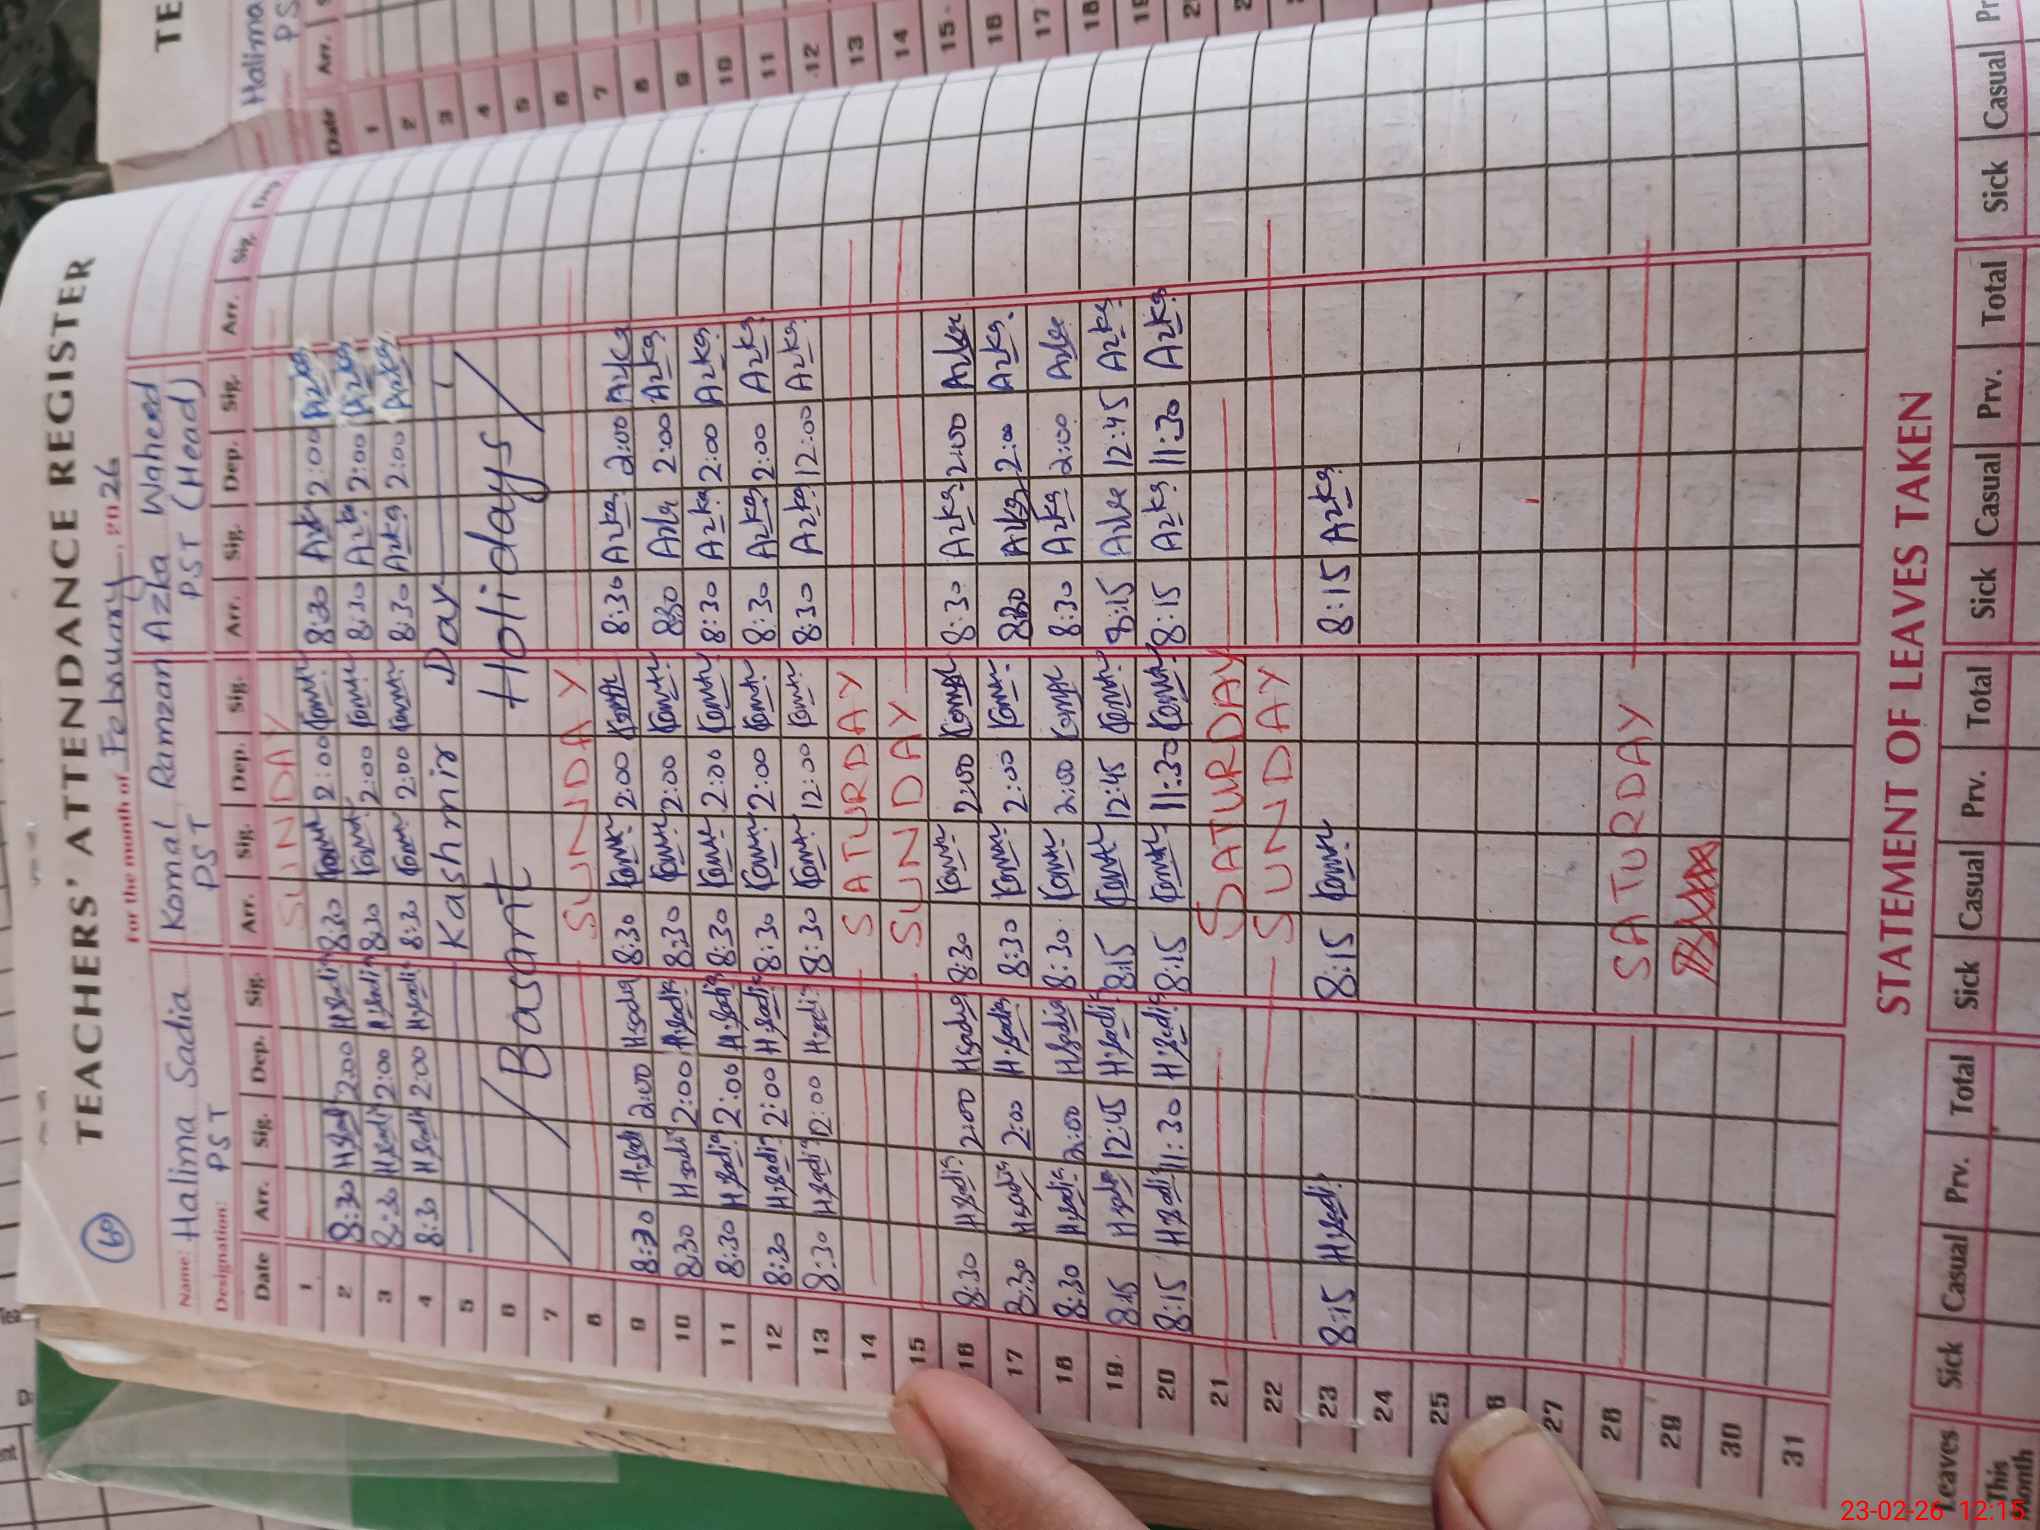 60
TEACHERS' ATTENDANCE REGISTER
For the month of February, 2026
Name: Halima Sadia Komal Ramzan Azka Waheed
Designation: PST PST PST (Head)
Date Arr. Sig. Dep. Sig. Arr. Sig. Dep. Sig. Arr. Sig. Dep. Sig. Arr. Sig. Dep.
1 SUNDAY
2 8:30 H.Sadia 2:00 H.Sadia 8:30 Komal 2:00 Komal 8:30 Azka 2:00 Azka
3 8:30 H.Sadia 2:00 H.Sadia 8:30 Komal 2:00 Komal 8:30 Azka 2:00 Azka
4 8:30 H.Sadia 2:00 H.Sadia 8:30 Komal 2:00 Komal 8:30 Azka 2:00 Azka
5 Kashmir Day
6 Basant Holidays
7
8 SUNDAY
9 8:30 H.Sadia 2:00 H.Sadia 8:30 Komal 2:00 Komal 8:30 Azka 2:00 Azka
10 8:30 H.Sadia 2:00 H.Sadia 8:30 Komal 2:00 Komal 8:30 Azka 2:00 Azka
11 8:30 H.Sadia 2:00 H.Sadia 8:30 Komal 2:00 Komal 8:30 Azka 2:00 Azka
12 8:30 H.Sadia 2:00 H.Sadia 8:30 Komal 2:00 Komal 8:30 Azka 2:00 Azka
13 8:30 H.Sadia 12:00 H.Sadia 8:30 Komal 12:00 Komal 8:30 Azka 12:00 Azka
14 SATURDAY
15 SUNDAY
16 8:30 H.Sadia 2:00 H.Sadia 8:30 Komal 2:00 Komal 8:30 Azka 2:00 Azka
17 8:30 H.Sadia 2:00 H.Sadia 8:30 Komal 2:00 Komal 8:30 Azka 2:00 Azka
18 8:30 H.Sadia 2:00 H.Sadia 8:30 Komal 2:00 Komal 8:30 Azka 2:00 Azka
19 8:15 H.Sadia 12:45 H.Sadia 8:15 Komal 12:45 Komal 8:15 Azka 12:45 Azka
20 8:15 H.Sadia 11:30 H.Sadia 8:15 Komal 11:30 Komal 8:15 Azka 11:30 Azka
21 SATURDAY
22 SUNDAY
23 8:15 H.Sadia 8:15 Komal 8:15 Azka
24
25
27
28 SATURDAY
29
30
31
STATEMENT OF LEAVES TAKEN
Leaves Sick Casual Prv. Total Sick Casual Prv. Total Sick Casual Prv. Total Sick Casual Pr
This Month
TE
Halima
PS
Date Arr.
1
2
3
4
5
6
7
8
9
10
11
12
13
14
15
16
17
18
23-02-26 12:15